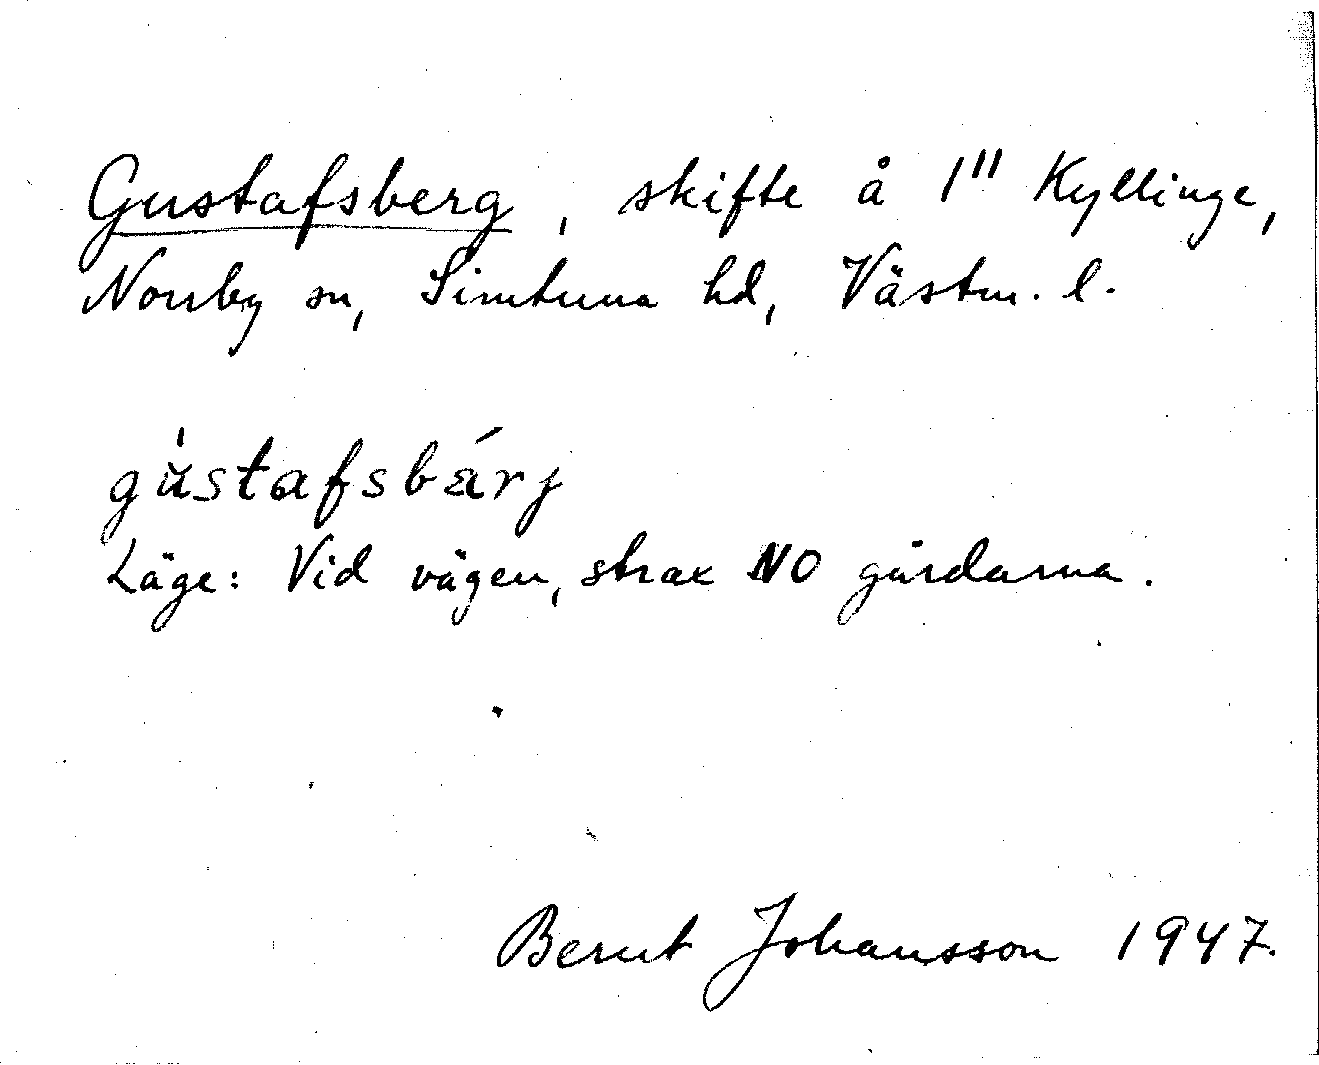 Gustafsberg, skifte å 1" Kyllinge,
Norrby sn, Simtuna hd, Västm. l.
gu̇stafsbärj
Läge: Vid vägen, strax NO gårdarna.
Bernt Johansson 1947.